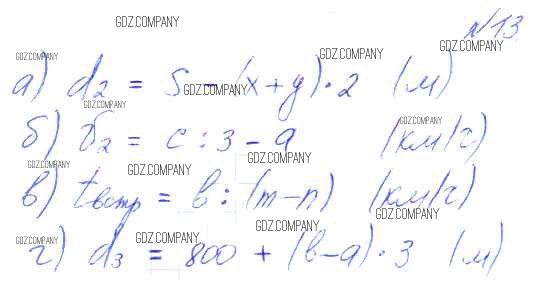 GDZ.COMPANY
№13
GDZ.COMPANY GDZ.COMPANY GDZ.COMPANY
а) d₂ = S - (x + y) · 2 (м)
GDZ.COMPANY GDZ.COMPANY
б) υ₂ = c : 3 - a (км/ч)
GDZ.COMPANY GDZ.COMPANY GDZ.COMPANY
в) tвстр = b : (m - n) (км/ч)
GDZ.COMPANY GDZ.COMPANY GDZ.COMPANY GDZ.COMPANY
г) d₃ = 800 + (b - a) · 3 (м)